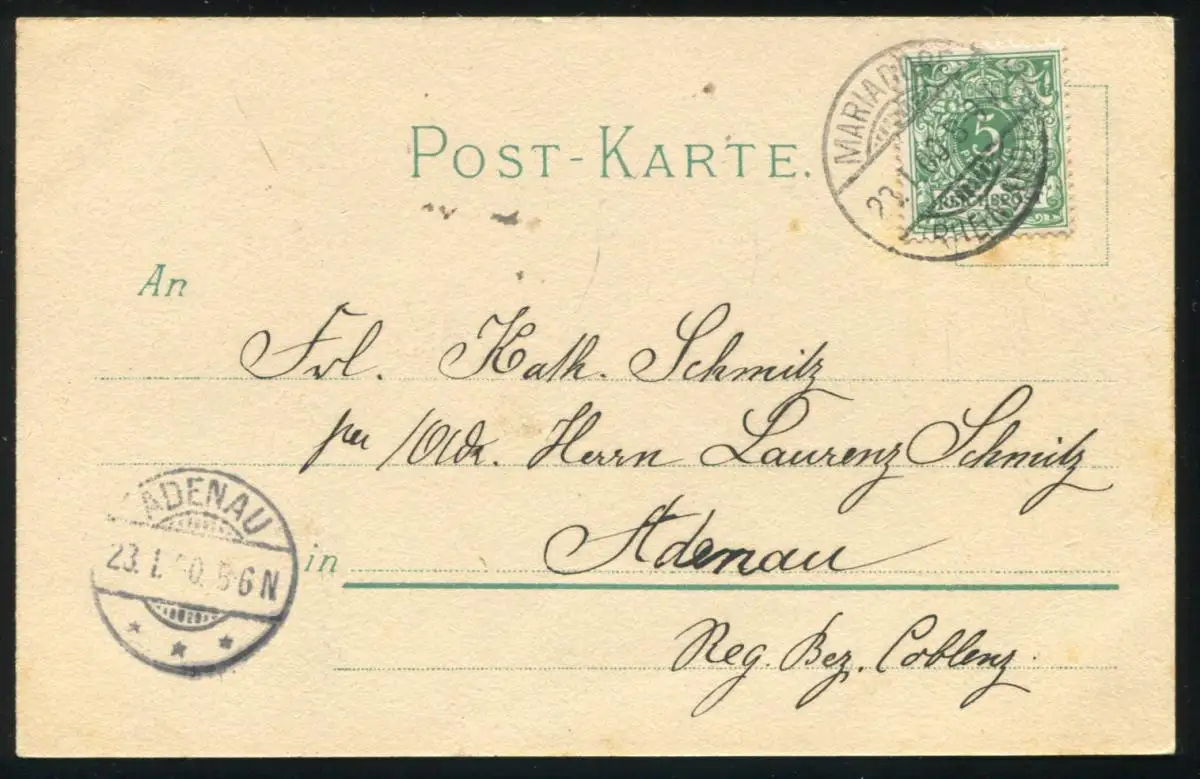 POST-KARTE.
MARIADORF
23.1.00.
(RHEINLAND)
5
REICHSPOST
An
Frl. Kath. Schmitz
per /Adr. Herrn Laurenz Schmitz
ADENAU
23.1. 5-6N
in Adenau
Reg. Bez. Coblenz.